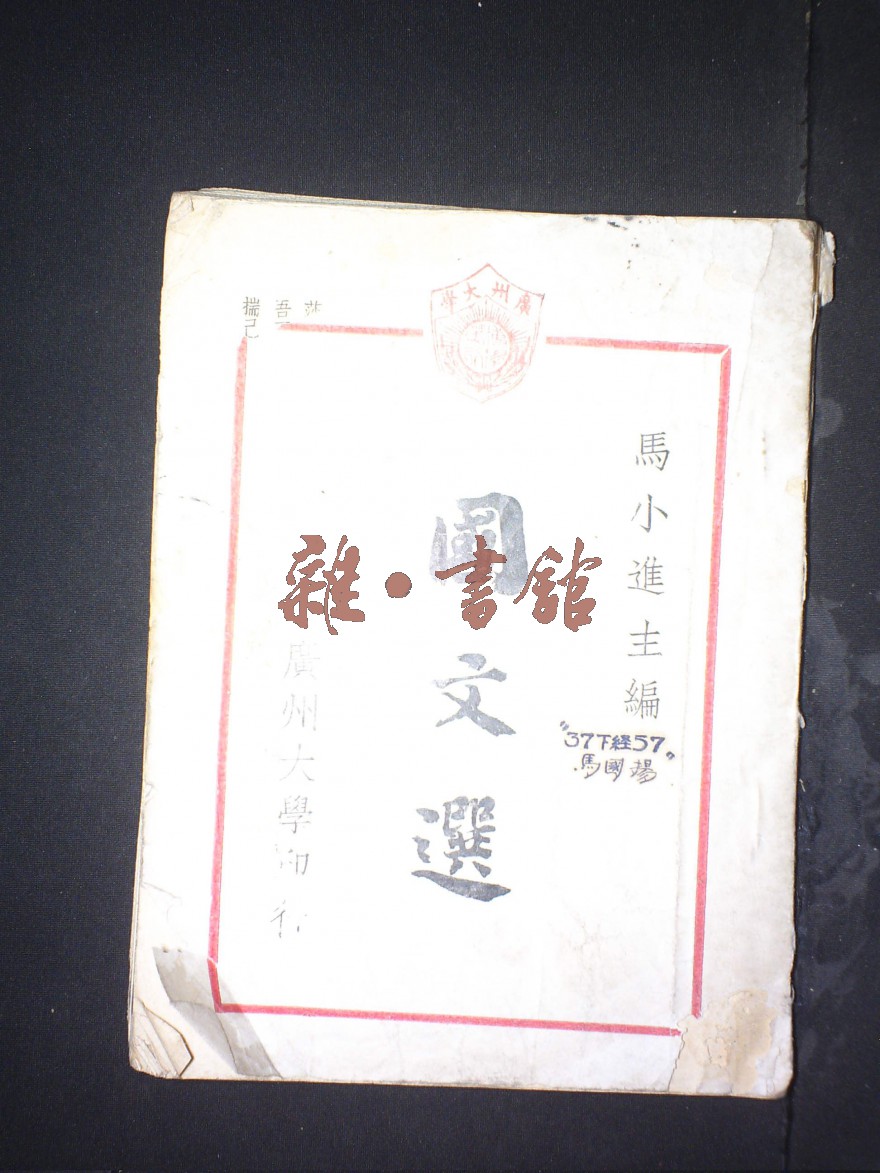 廣州大學
馬小進主編
國文選
廣州大學印行
"37下経57"
馬國揚
雜·書館